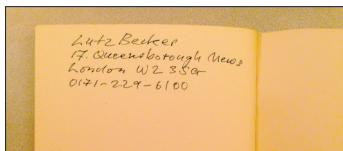 Lutz Becker
17. Queensborough Mews
London W2 3SG
0171-229-6100